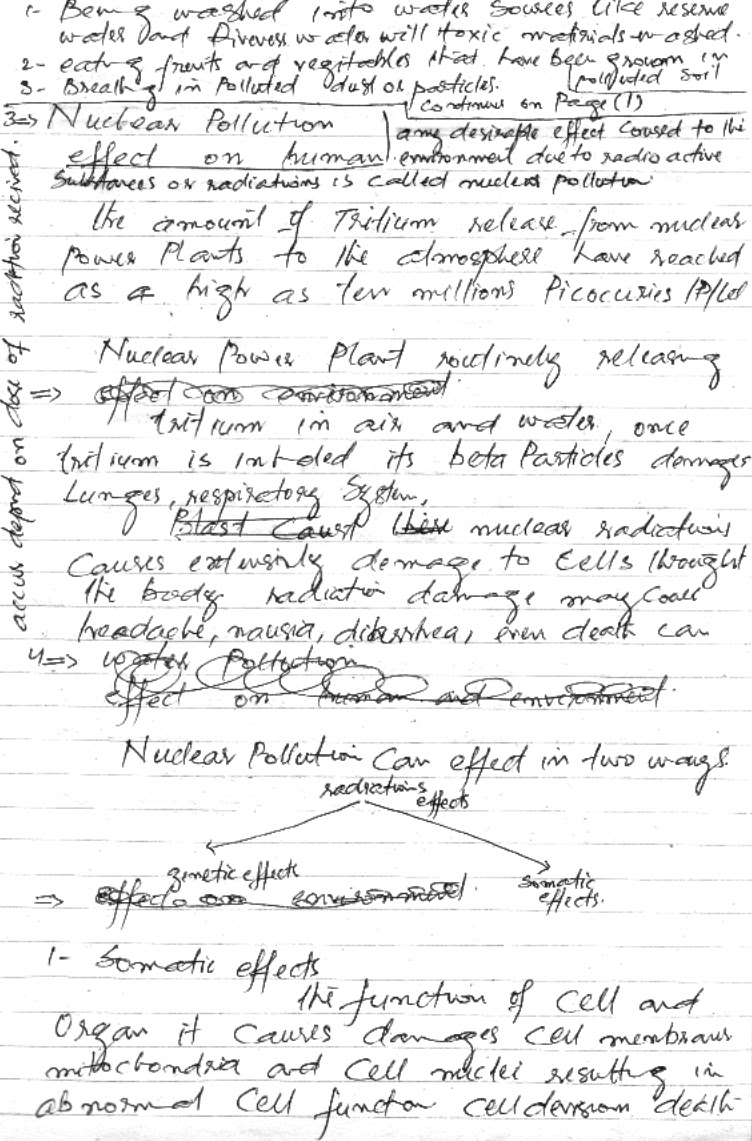 1- Being washed into water sources like reserve
water and Rivers water will toxic materials washed.
2- eating fruits and vegitables that have been grown in
polluted soil
3- Breathing in Polluted dust or particles.
continues on Page (1)
3=> Nuclear Pollution
effect on human
any desirable effect coused to the
environment due to radio active
Substances or radiations is called nuclear pollution
the amount of Tritium release from nuclear
Power Plants to the atmosphere have reached
as a high as ten millions Picocuries
Nuclear Power Plant routinely releasing
=> effect on environment
tritium in air and water, once
tritium is its beta Particles damages
Lunges, respiretory System,
Blast Caust nuclear radiations
Causes extensivly damage to Cells throught
the body radiation damage may Cause
headache, nausia, diharrhea, even death can
accur depend on dose of radition recived.
4=> water Pollution
effect on human and environment.
Nuclear Pollution Can effect in two ways
radiations
effects
genetic effects
somatic
effects.
=> effect on environment.
1- Somatic effects
the function of Cell and
Organ it Causes damages Cell membrans
mitochondria and Cell nuclei resulting in
abnormal Cell function Cell devision death